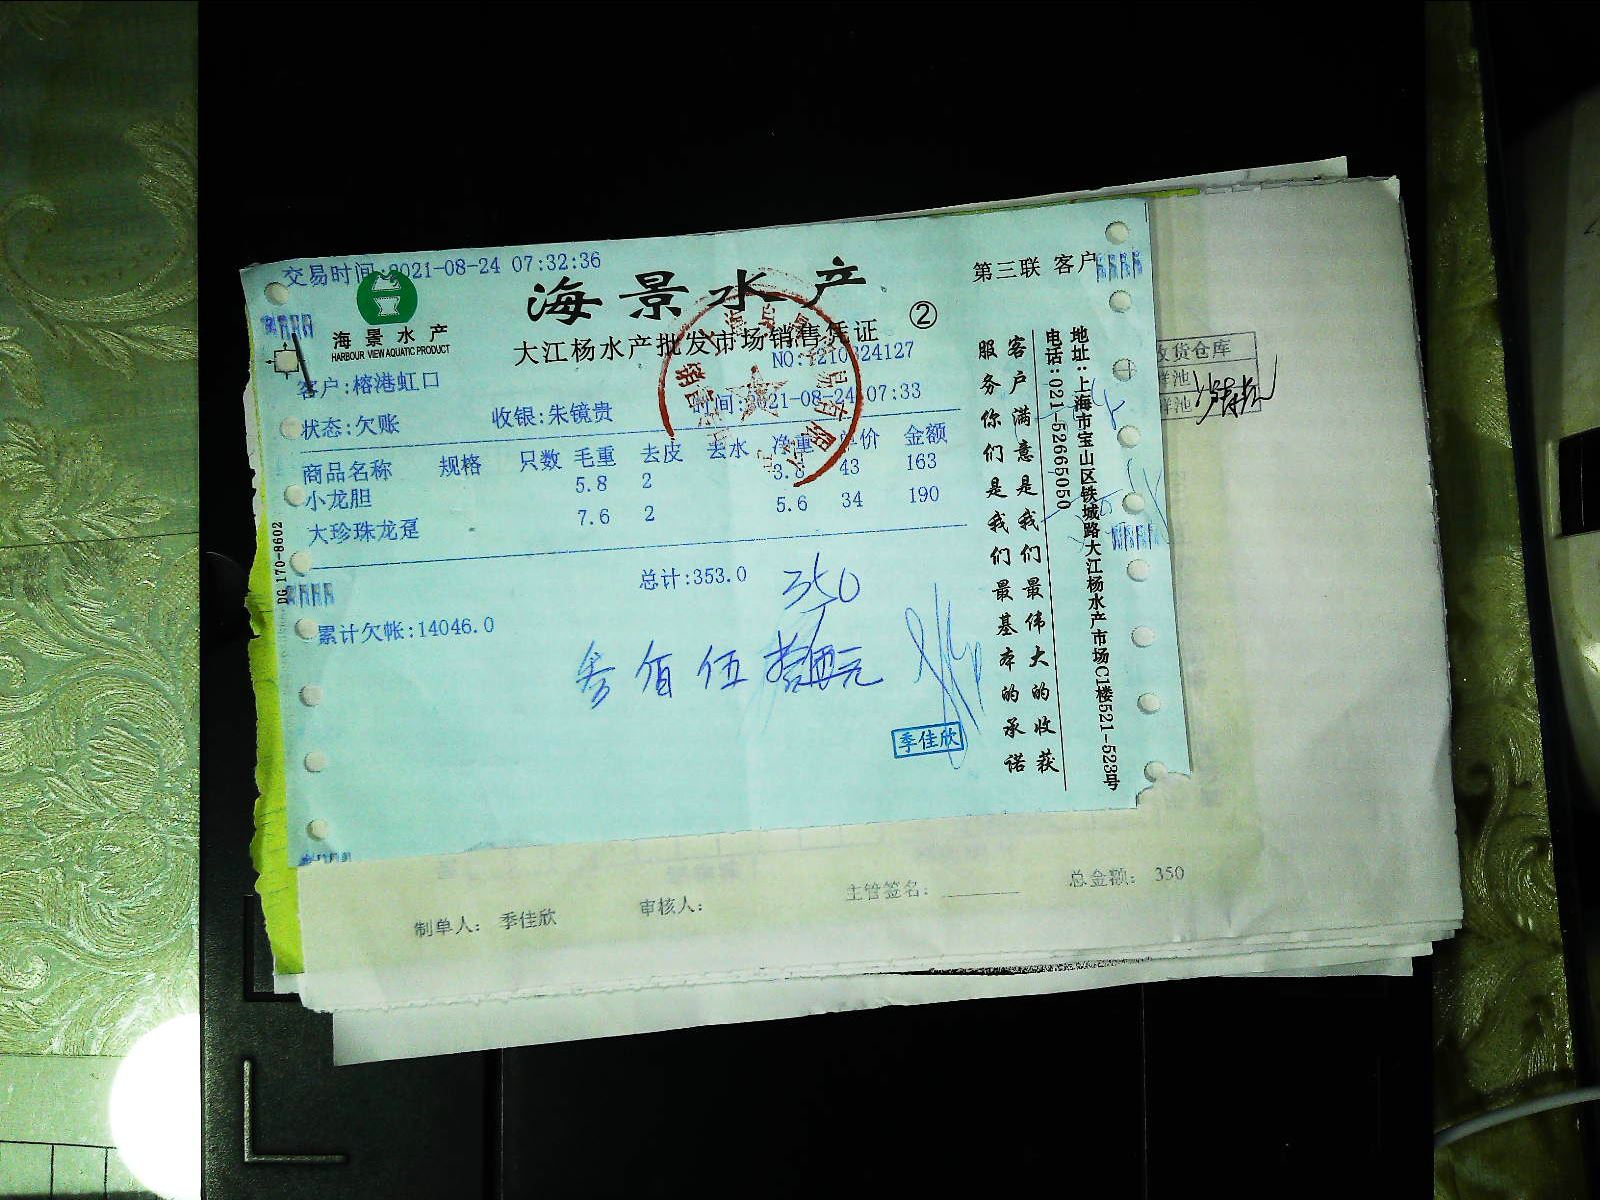 交易时间:2021-08-24 07:32:36
海景水产
HARBOUR VIEW AQUATIC PRODUCT
海景水产
第三联 客户
大江杨水产批发市场销售凭证 ②
客户:榕港虹口
状态:欠账 收银:朱镜贵 时间:2021-08-24 07:33
商品名称 规格 只数 毛重 去皮 去水 净重 单价 金额
小龙胆 5.8 2 43 163
大珍珠龙趸 7.6 2 5.6 34 190
总计:353.0
350
累计欠帐:14046.0
叁佰伍拾元
季佳欣
客户满意是我们最伟大的收获
服务你们是我们最基本的承诺
地址:上海市宝山区铁城路大江杨水产市场C1楼521-523号
电话:021-52665050
DG 170-8602
收货仓库
制单人: 季佳欣 审核人: 主管签名: 总金额: 350